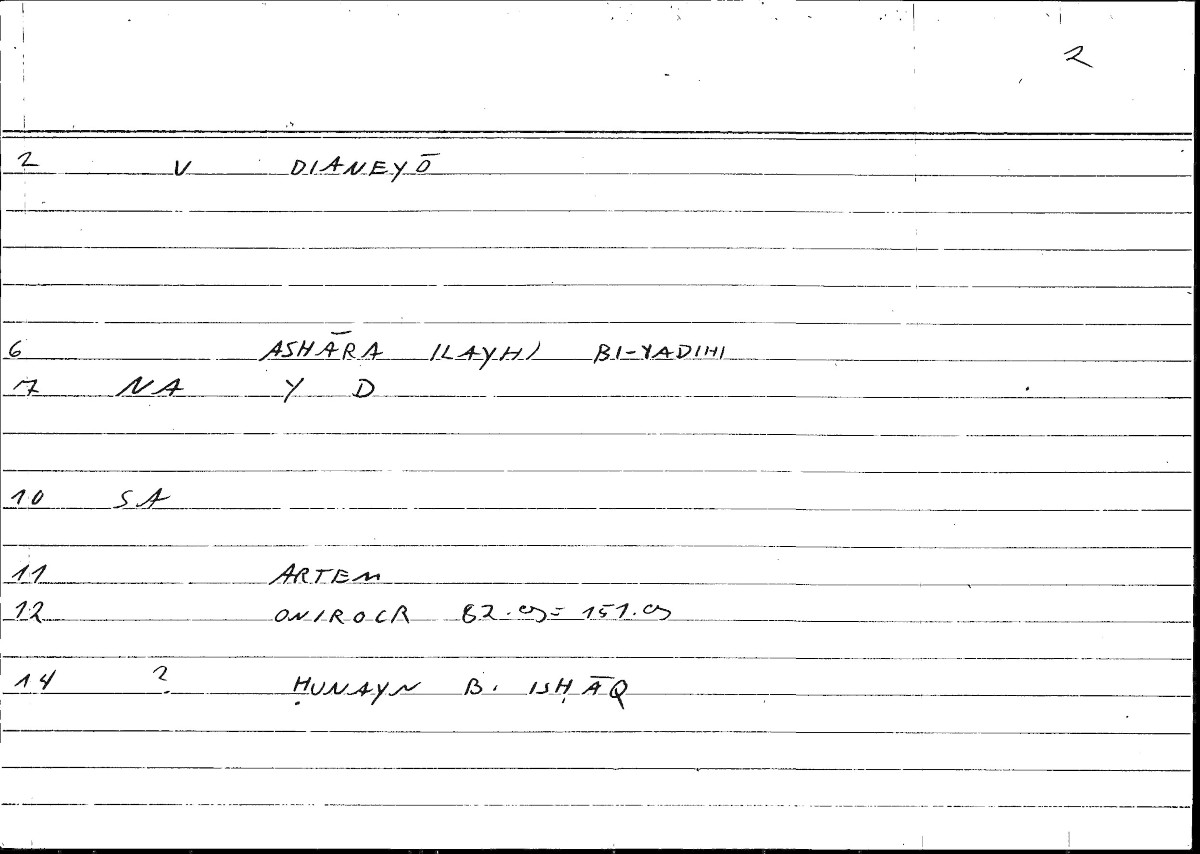 2
2 V DIANEYŌ
6 ASHĀRA ILAYHI BI-YADIHI
7 NA Y D
10 SA
11 ARTEM
12 ONIROCR
14 ? ḤUNAYN B. ISḤĀQ